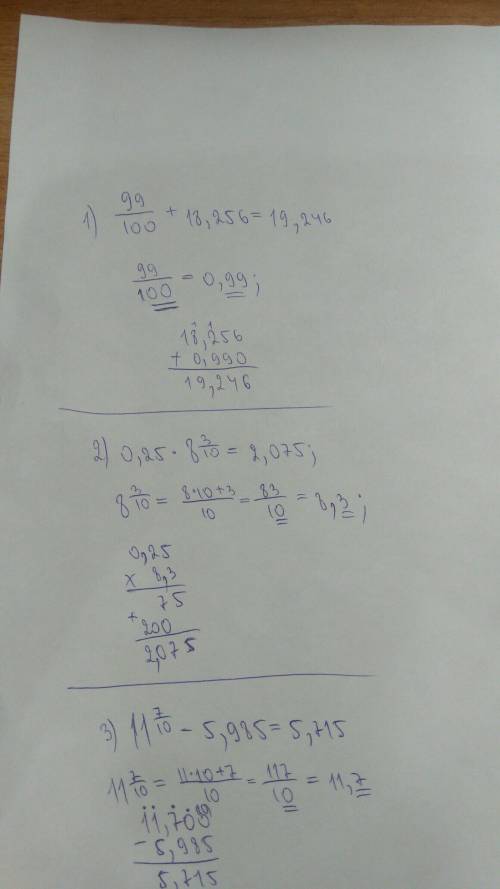 1) 99/100 + 18,256 = 19,246
99/100 = 0,99;
18,256
+ 0,990
19,246
2) 0,25 · 8 3/10 = 2,075;
8 3/10 = 8·10+3/10 = 83/10 = 8,3;
0,25
x 8,3
75
+
200
2,075
3) 11 7/10 - 5,985 = 5,715
11 7/10 = 11·10+7/10 = 117/10 = 11,7
11,700
- 5,985
5,715